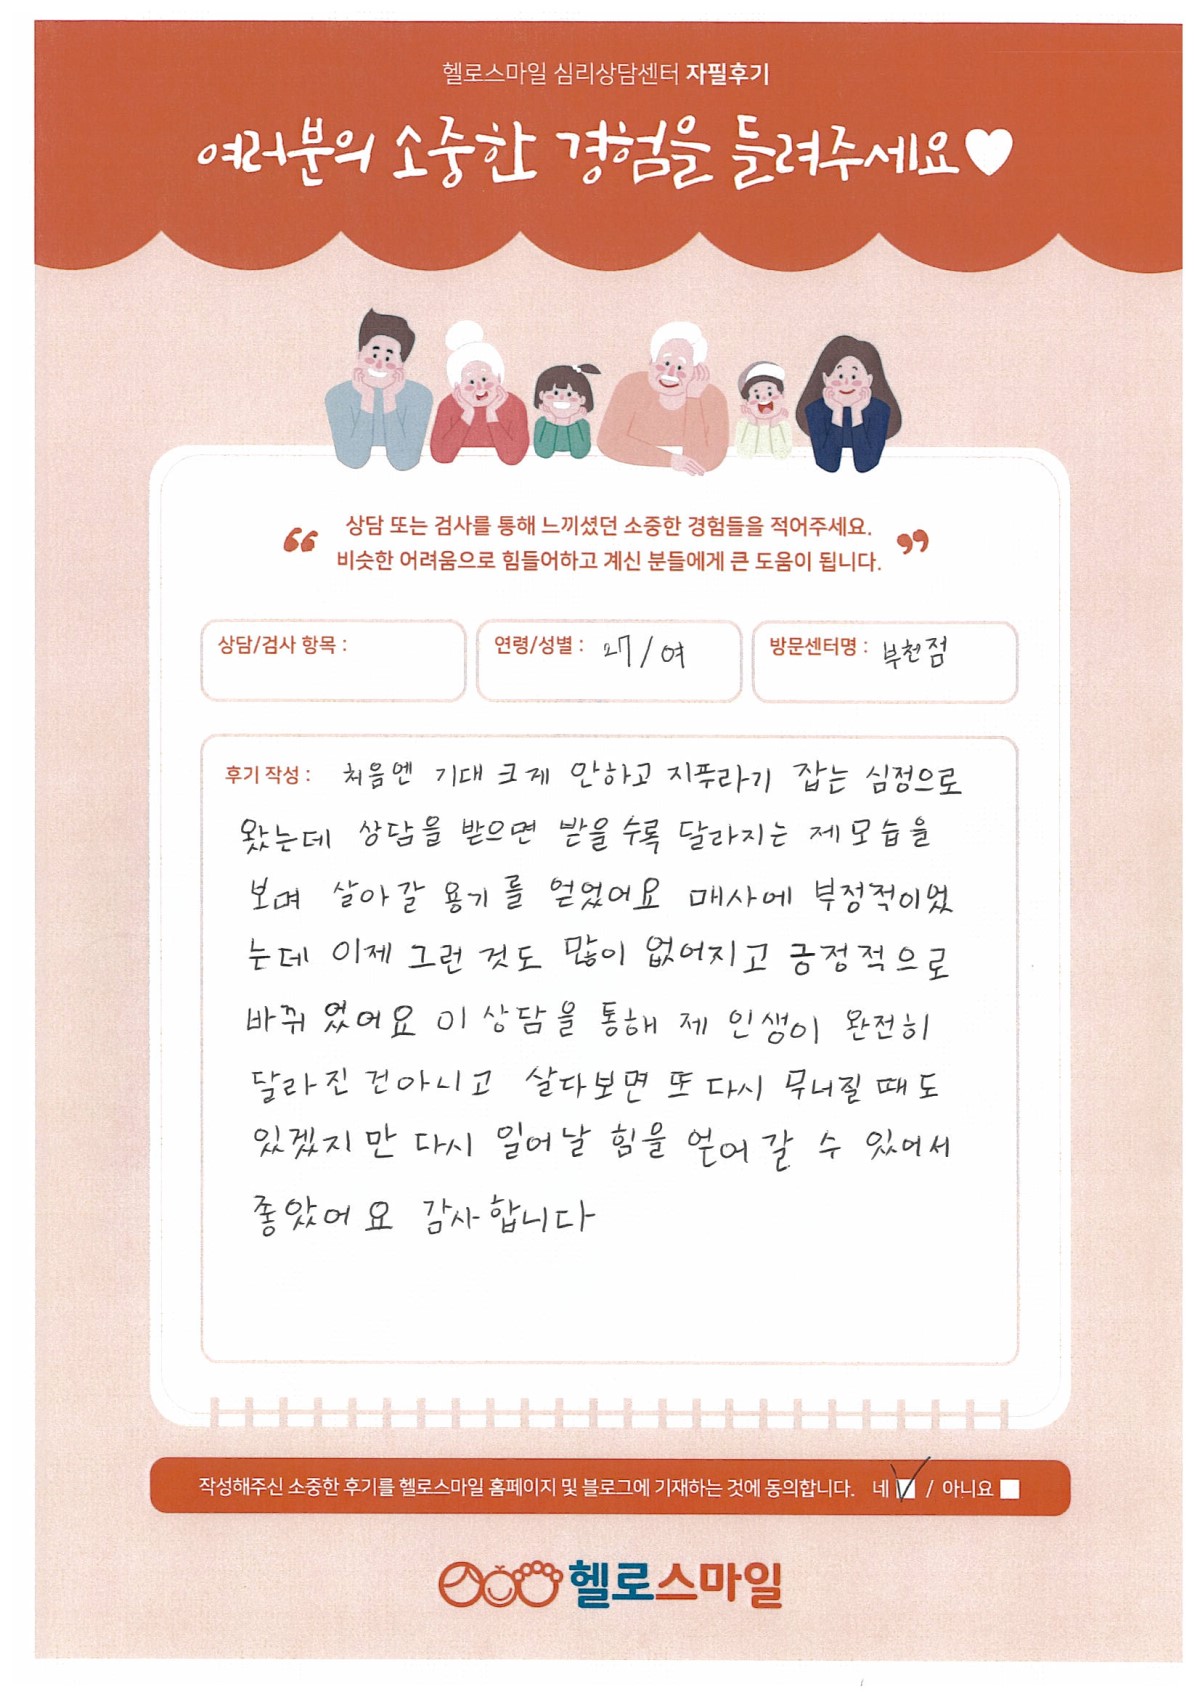 헬로스마일 심리상담센터 자필후기
여러분의 소중한 경험을 들려주세요♥
“ 상담 또는 검사를 통해 느끼셨던 소중한 경험들을 적어주세요.
비슷한 어려움으로 힘들어하고 계신 분들에게 큰 도움이 됩니다. ”
상담/검사 항목 :
연령/성별 : 27/여
방문센터명 : 부천점
후기 작성 : 처음엔 기대 크게 안하고 지푸라기 잡는 심정으로
왔는데 상담을 받으면 받을 수록 달라지는 제 모습을
보며 살아갈 용기를 얻었어요 매사에 부정적이었
는데 이제 그런 것도 많이 없어지고 긍정적으로
바뀌었어요 이 상담을 통해 제 인생이 완전히
달라진 건아니고 살다보면 또 다시 무너질 때도
있겠지만 다시 일어날 힘을 얻어갈 수 있어서
좋았어요 감사합니다
작성해주신 소중한 후기를 헬로스마일 홈페이지 및 블로그에 기재하는 것에 동의합니다. 네 / 아니요
헬로스마일